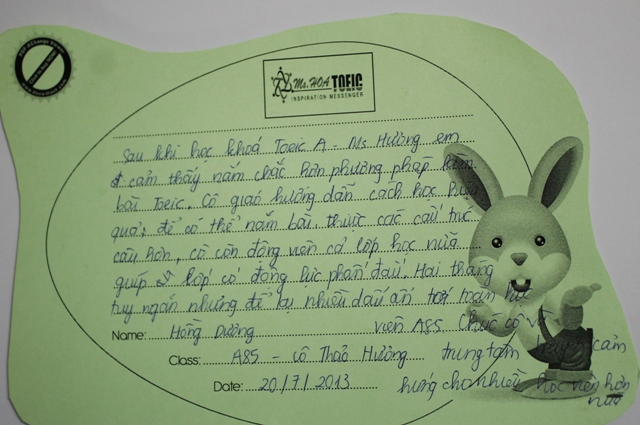 Ms. HOA TOEIC
INSPIRATION MESSENGER
Sau khi học khoá Toeic A - Ms Hường em
cảm thấy nắm chắc hơn phương pháp làm
bài Toeic. Cô giáo hướng dẫn cách học hiệu
quả, để có thể nắm bài, thuộc các cấu trúc
câu hơn, cô còn động viên cả lớp học nữa
giúp lớp có động lực phấn đấu. Hai tháng
tuy ngắn nhưng để lại nhiều dấu ấn tới toàn học
Name: Hồng Dương viên A85. Chúc cô và
Class: A85 - cô Thảo Hường trung tâm truyền cảm
Date: 20/7/2013 hứng cho nhiều học viên hơn
nữa